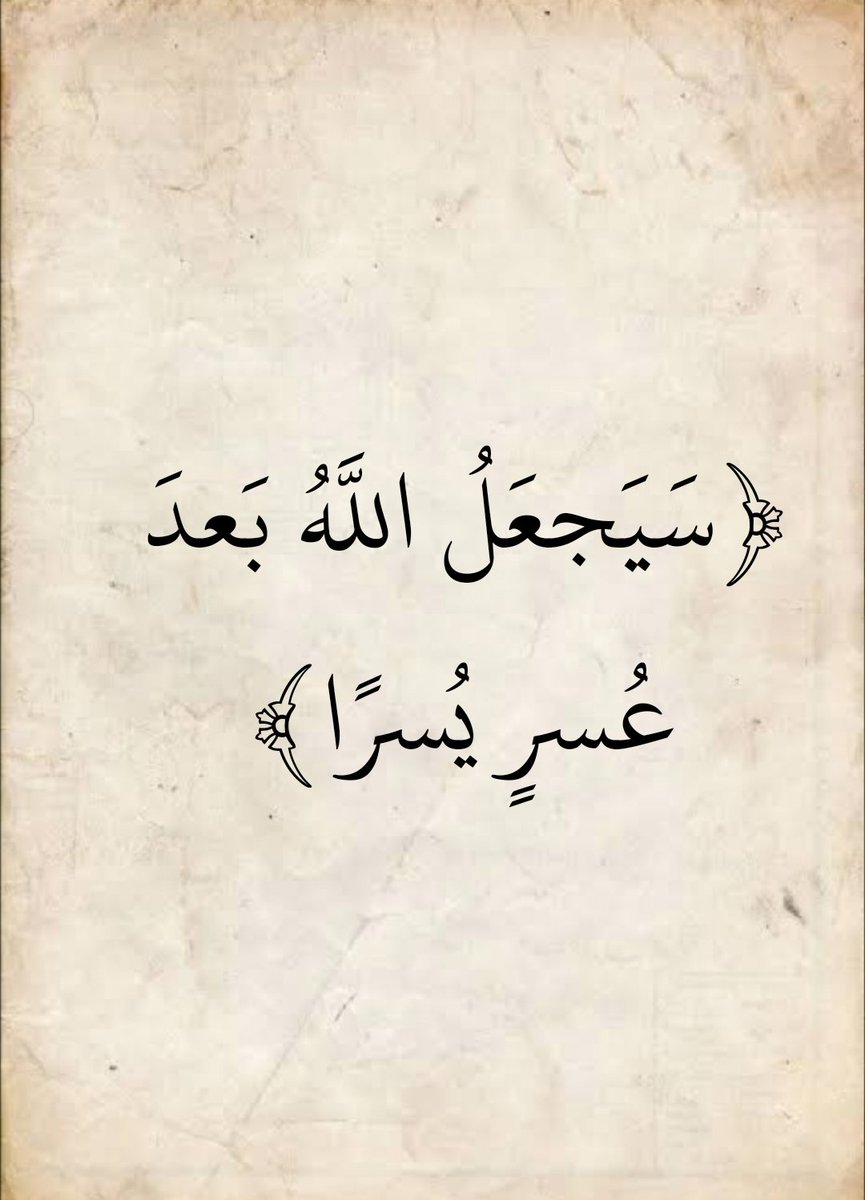 ﴿سَيَجعَلُ اللَّهُ بَعدَ
عُسرٍ يُسرًا﴾